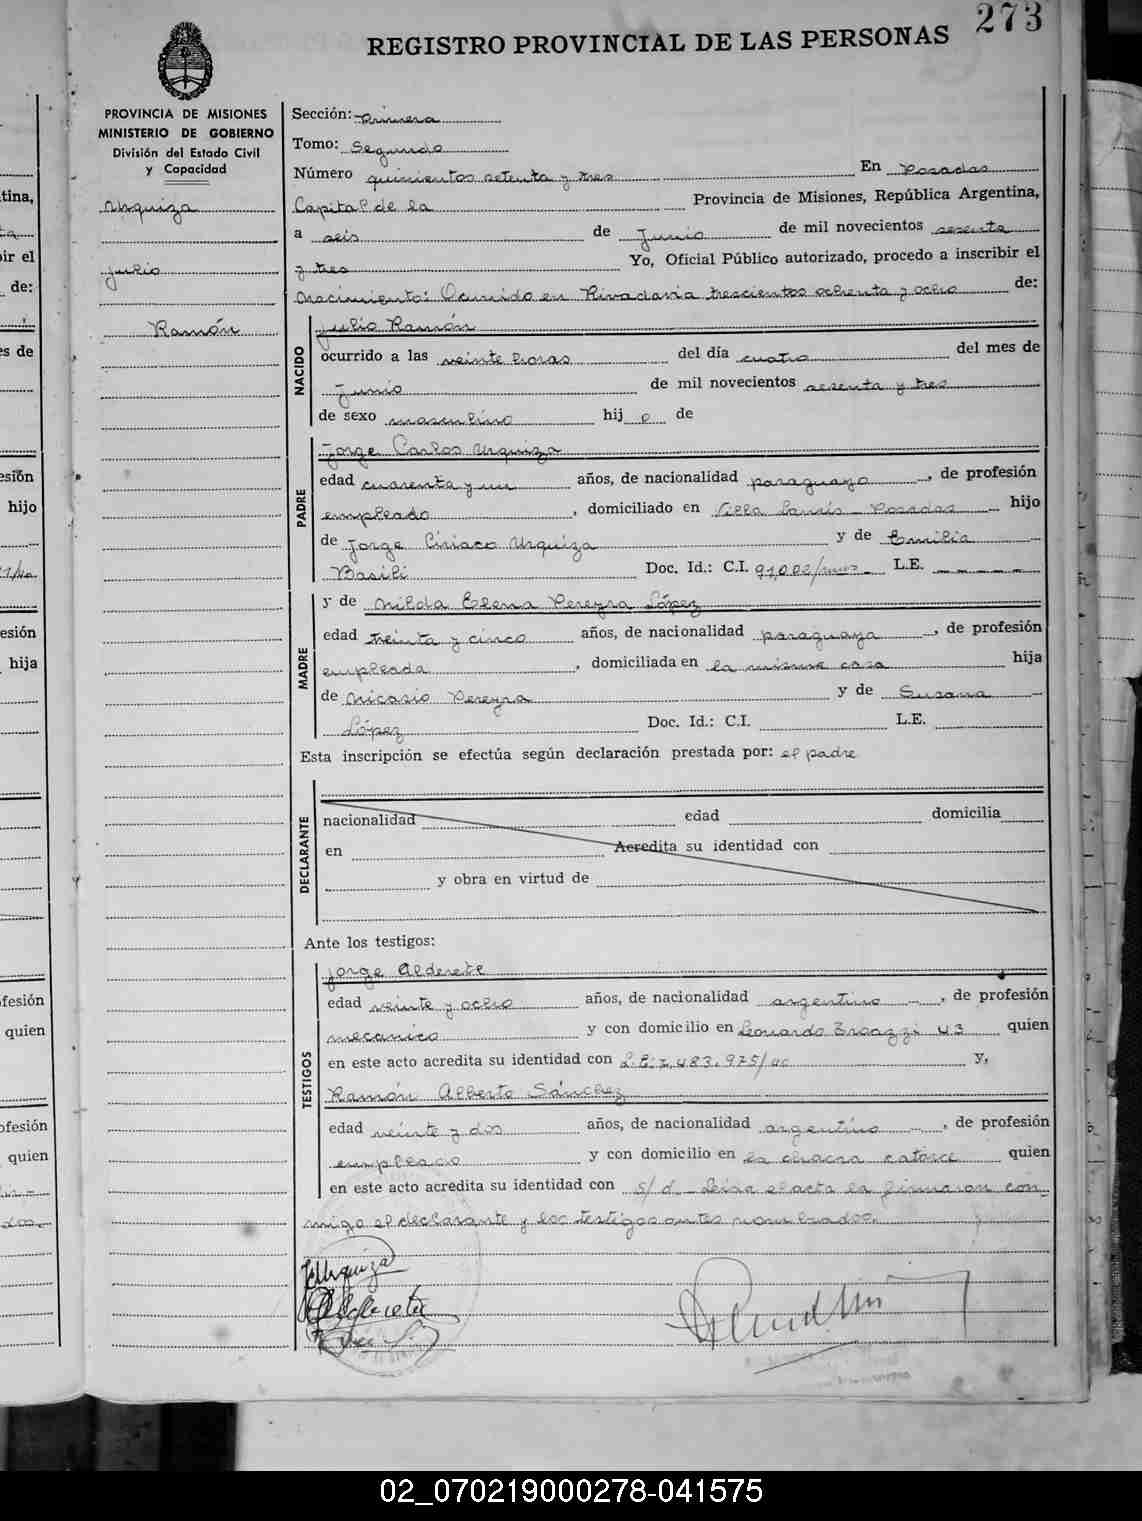 273
REGISTRO PROVINCIAL DE LAS PERSONAS
PROVINCIA DE MISIONES
MINISTERIO DE GOBIERNO
División del Estado Civil
y Capacidad
Urquiza
Julio
Ramón
Sección: Primera
Tomo: Segundo
Número quinientos setenta y tres En Posadas
Capital de la Provincia de Misiones, República Argentina,
a seis de Junio de mil novecientos sesenta
y tres Yo, Oficial Público autorizado, procedo a inscribir el
Nacimiento: Ocurrido en Rivadavia trescientos ochenta y ocho de:
NACIDO
Julio Ramón
ocurrido a las veinte horas del día cuatro del mes de
Junio de mil novecientos sesenta y tres
de sexo masculino hij o de
PADRE
Jorge Carlos Urquiza
edad cuarenta y un años, de nacionalidad paraguayo, de profesión
empleado, domiciliado en Villa Posadas hijo
de Jorge Ciriaco Urquiza y de Emilia
Basili Doc. Id.: C.I. L.E.
MADRE
y de Nilda Elena Pereyra López
edad treinta y cinco años, de nacionalidad paraguaya, de profesión
empleada, domiciliada en la misma casa hija
de Nicasio Pereyra y de Susana
López Doc. Id.: C.I. L.E.
Esta inscripción se efectúa según declaración prestada por: el padre
DECLARANTE
nacionalidad edad domicilia
en Acredita su identidad con
y obra en virtud de
Ante los testigos:
TESTIGOS
Jorge Alderete
edad veinte y ocho años, de nacionalidad argentino, de profesión
mecanico y con domicilio en Leonardo 43 quien
en este acto acredita su identidad con L.E. 7.483.975/ y,
Ramón Alberto Sánchez
edad veinte y dos años, de nacionalidad argentino, de profesión
empleado y con domicilio en la chacra catorce quien
en este acto acredita su identidad con s/d. Leida el acta la firmaron con-
migo el declarante y los testigos antes nombrados.
JCUrquiza
02_070219000278-041575